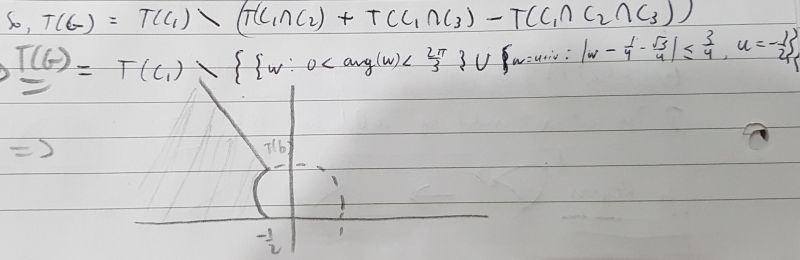 So, T(G) = T(C₁) \ (T(C₁∩C₂) + T(C₁∩C₃) − T(C₁∩C₂∩C₃))
T(G) = T(C₁) \ { {w: 0 < arg(w) < 2π/3 } ∪ { w=u+iv : |w − 1/4 − √3/4| ≤ 3/4, u = −1/2}}
=>
T(b)
−1/2